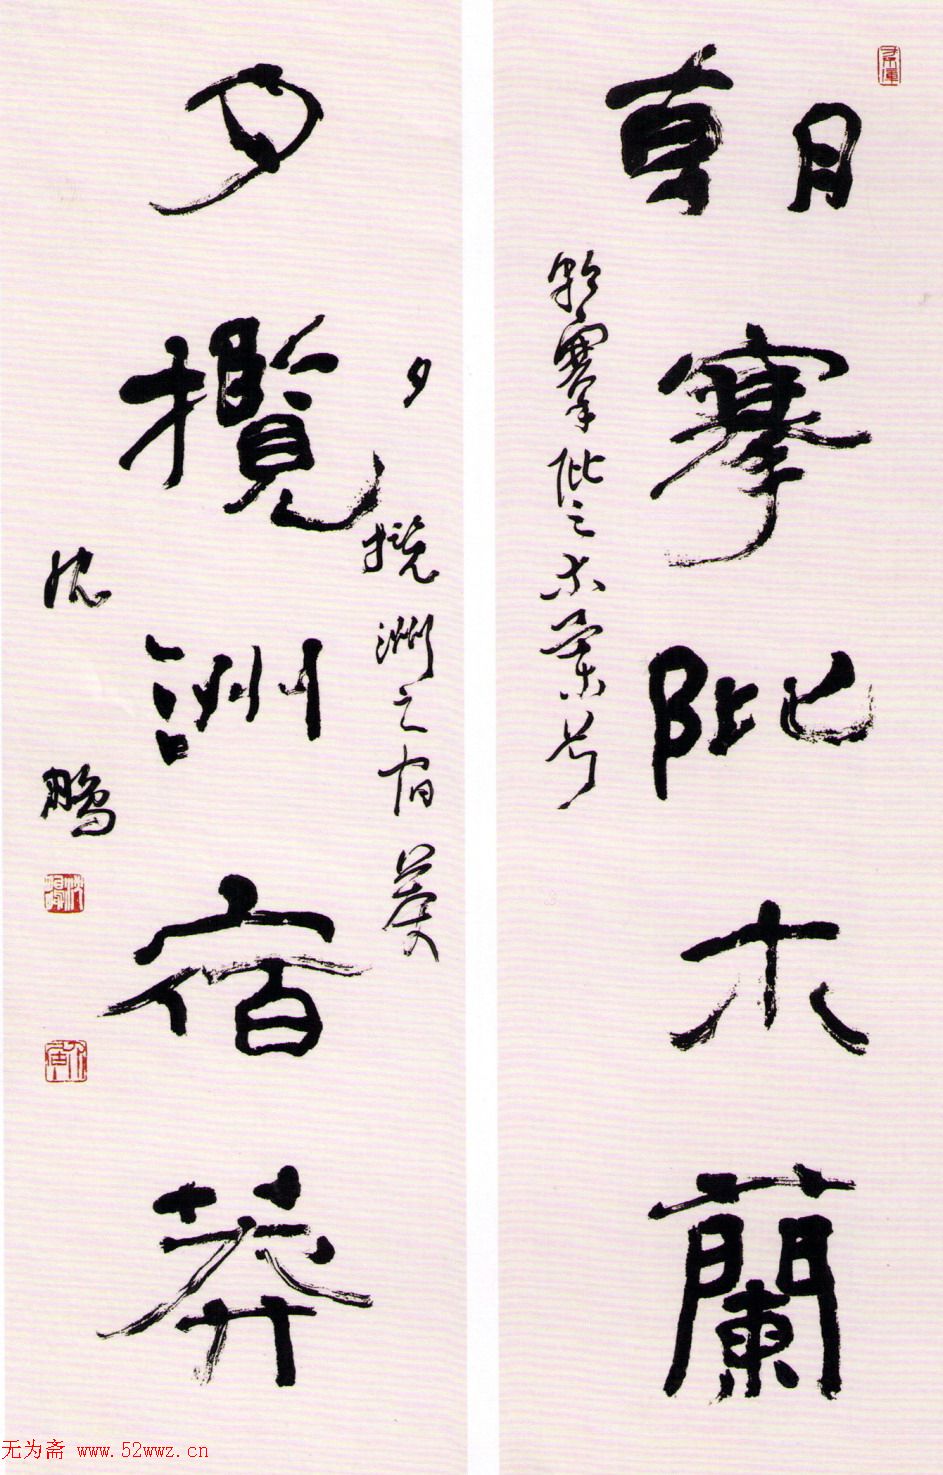 朝搴阰木蘭
朝搴阰之木蘭兮
夕攬洲之宿莽
夕攬洲宿莽
沈鵬
沈鵬
无为斋 www.52wwz.cn